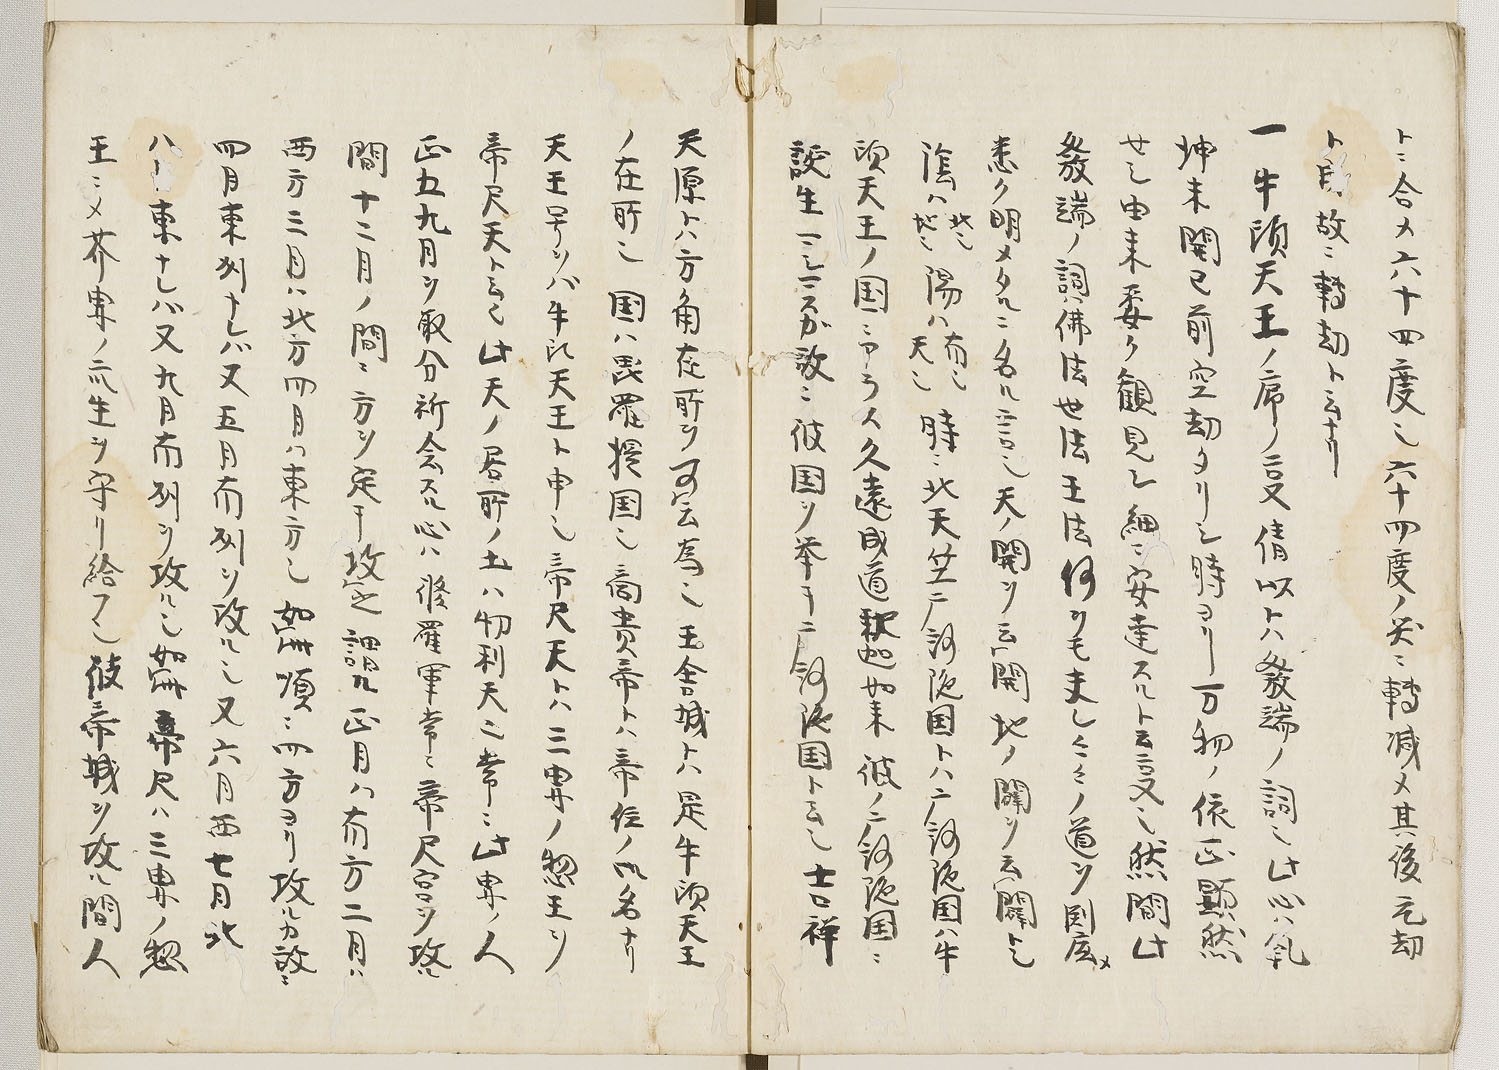 トニ合メ六十四度ニ六十四度ノ災ニ轉减メ其後元劫
ト故ニ轉劫ト云ナリ
一牛頭天王ノ序ノ言文倩以トハ發端ノ詞ニ此心ハ乾
坤未開已前空劫タリシ時ヨリ万物ノ依正顯然
セシ由来委ク觀見シ細ニ安達スルト云言文ニ然間此
發端ノ詞ハ佛法世法王法何ツモ夫レ〻ノ道ヲ到底メ
悉ク明メタルニ名ル言ニ天ノ開ヲ云開地ノ闢ヲ云闢トニ
陰ハ北ニ地ニ陽ハ南ニ天ニ時ニ北天竺ニ訶陀国トハ二訶陀国ハ牛
頭天王ノ国ニアラス久遠成道釈迦如来彼ノ二訶陀国ニ
誕生一シスガ故ニ彼国ヲ挙テ二訶陀国ト云ニ吉祥
天原トハ方角在所ヲ可云為ニ玉舎城トハ是牛頭天王
ノ在所ニ国ハ毘羅提国ニ高貴帝トハ帝位ノ御名ナリ
天王号ヲバ牛頭天王ト申ニ帝尺天トハ三界ノ惣王ヲ
帝尺天ト云ニ此天ノ居所ノ土ハ忉利天ニ常ニ此界ノ人
正五九月ヲ取分祈会スル心ハ修羅軍常ニ帝尺宮ヲ攻ル
間十二月ノ間ニ方ヲ定テ攻之謂ル正月ハ南方二月ハ
西方三月ハ北方四月ハ東方ニ如此順ニ四方ヨリ攻ルカ故ニ
四月東列ナレバ又五月南列ヲ攻ルニ又六月西七月北
八月東ナレバ又九月南列ヲ攻ルニ如此帝尺ハ三界ノ惣
王ニメ芥界ノ衆生ヲ守リ給フニ彼帝城ヲ攻ル間人